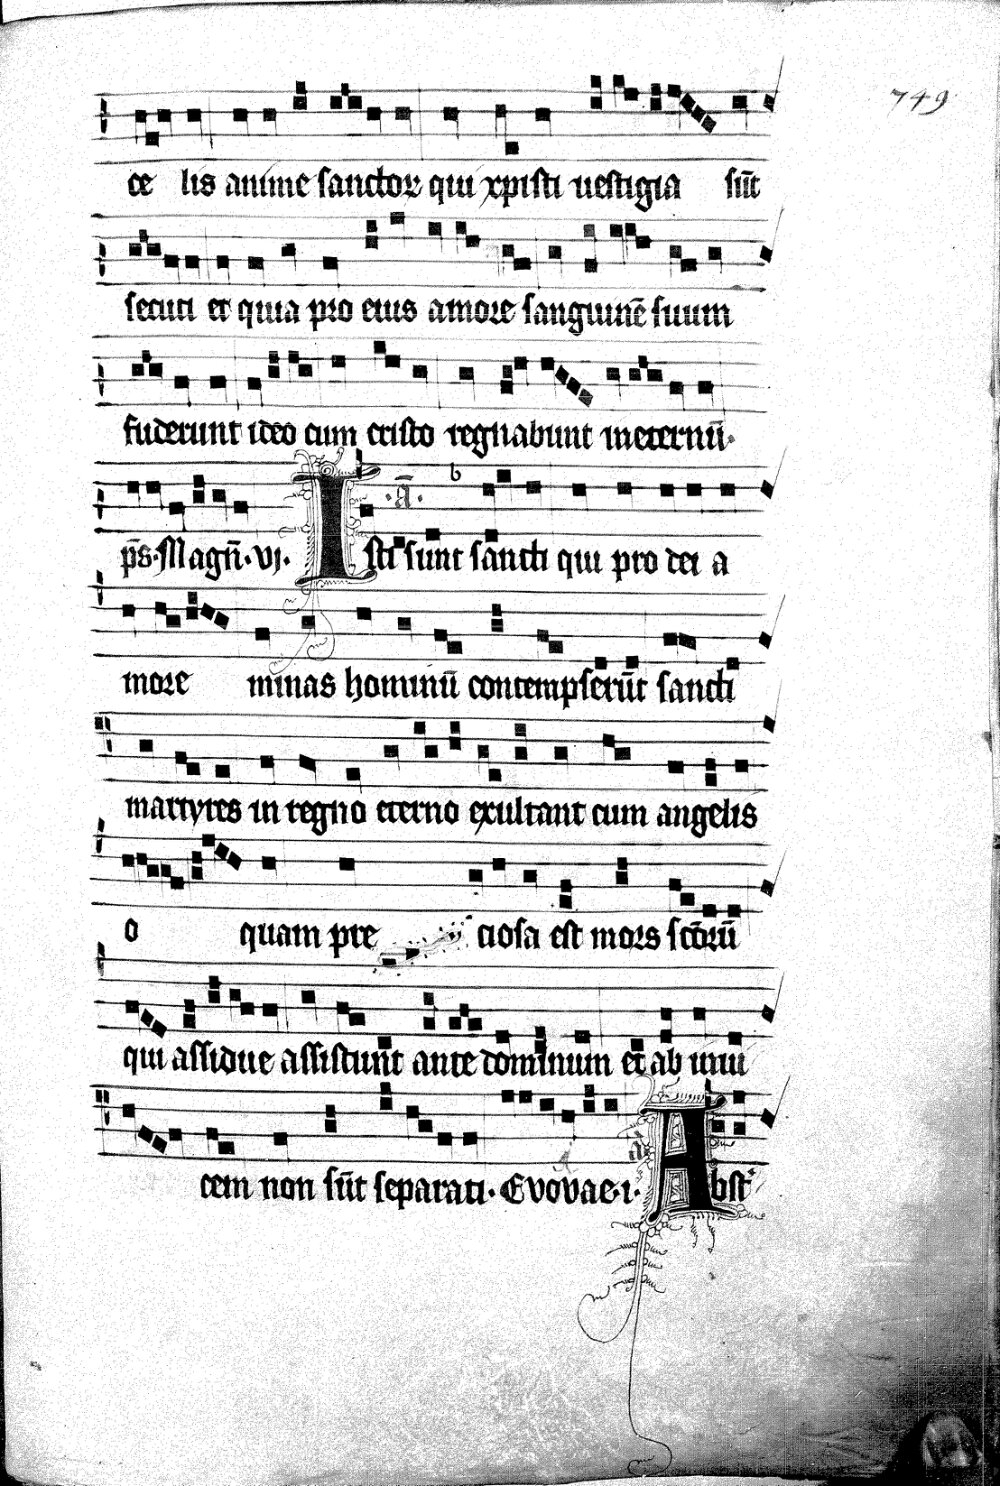 749
ce lis anime sanctoꝝ qui xpisti uestigia sūt
secuti et quia pro eius amore sanguinē suum
fuderunt ideo cum cristo regnabunt ineternū·
p̄s· Magn̄· vj· ·ā· Isti sunt sancti qui pro dei a
more minas hominū contempserūt sancti
martyres in regno eterno exultant cum angelis
o quam pre ciosa est mors sctōrū
qui assidue assistunt ante dominum et ab inui
cem non sūt separati· Evovae· 1· Abst